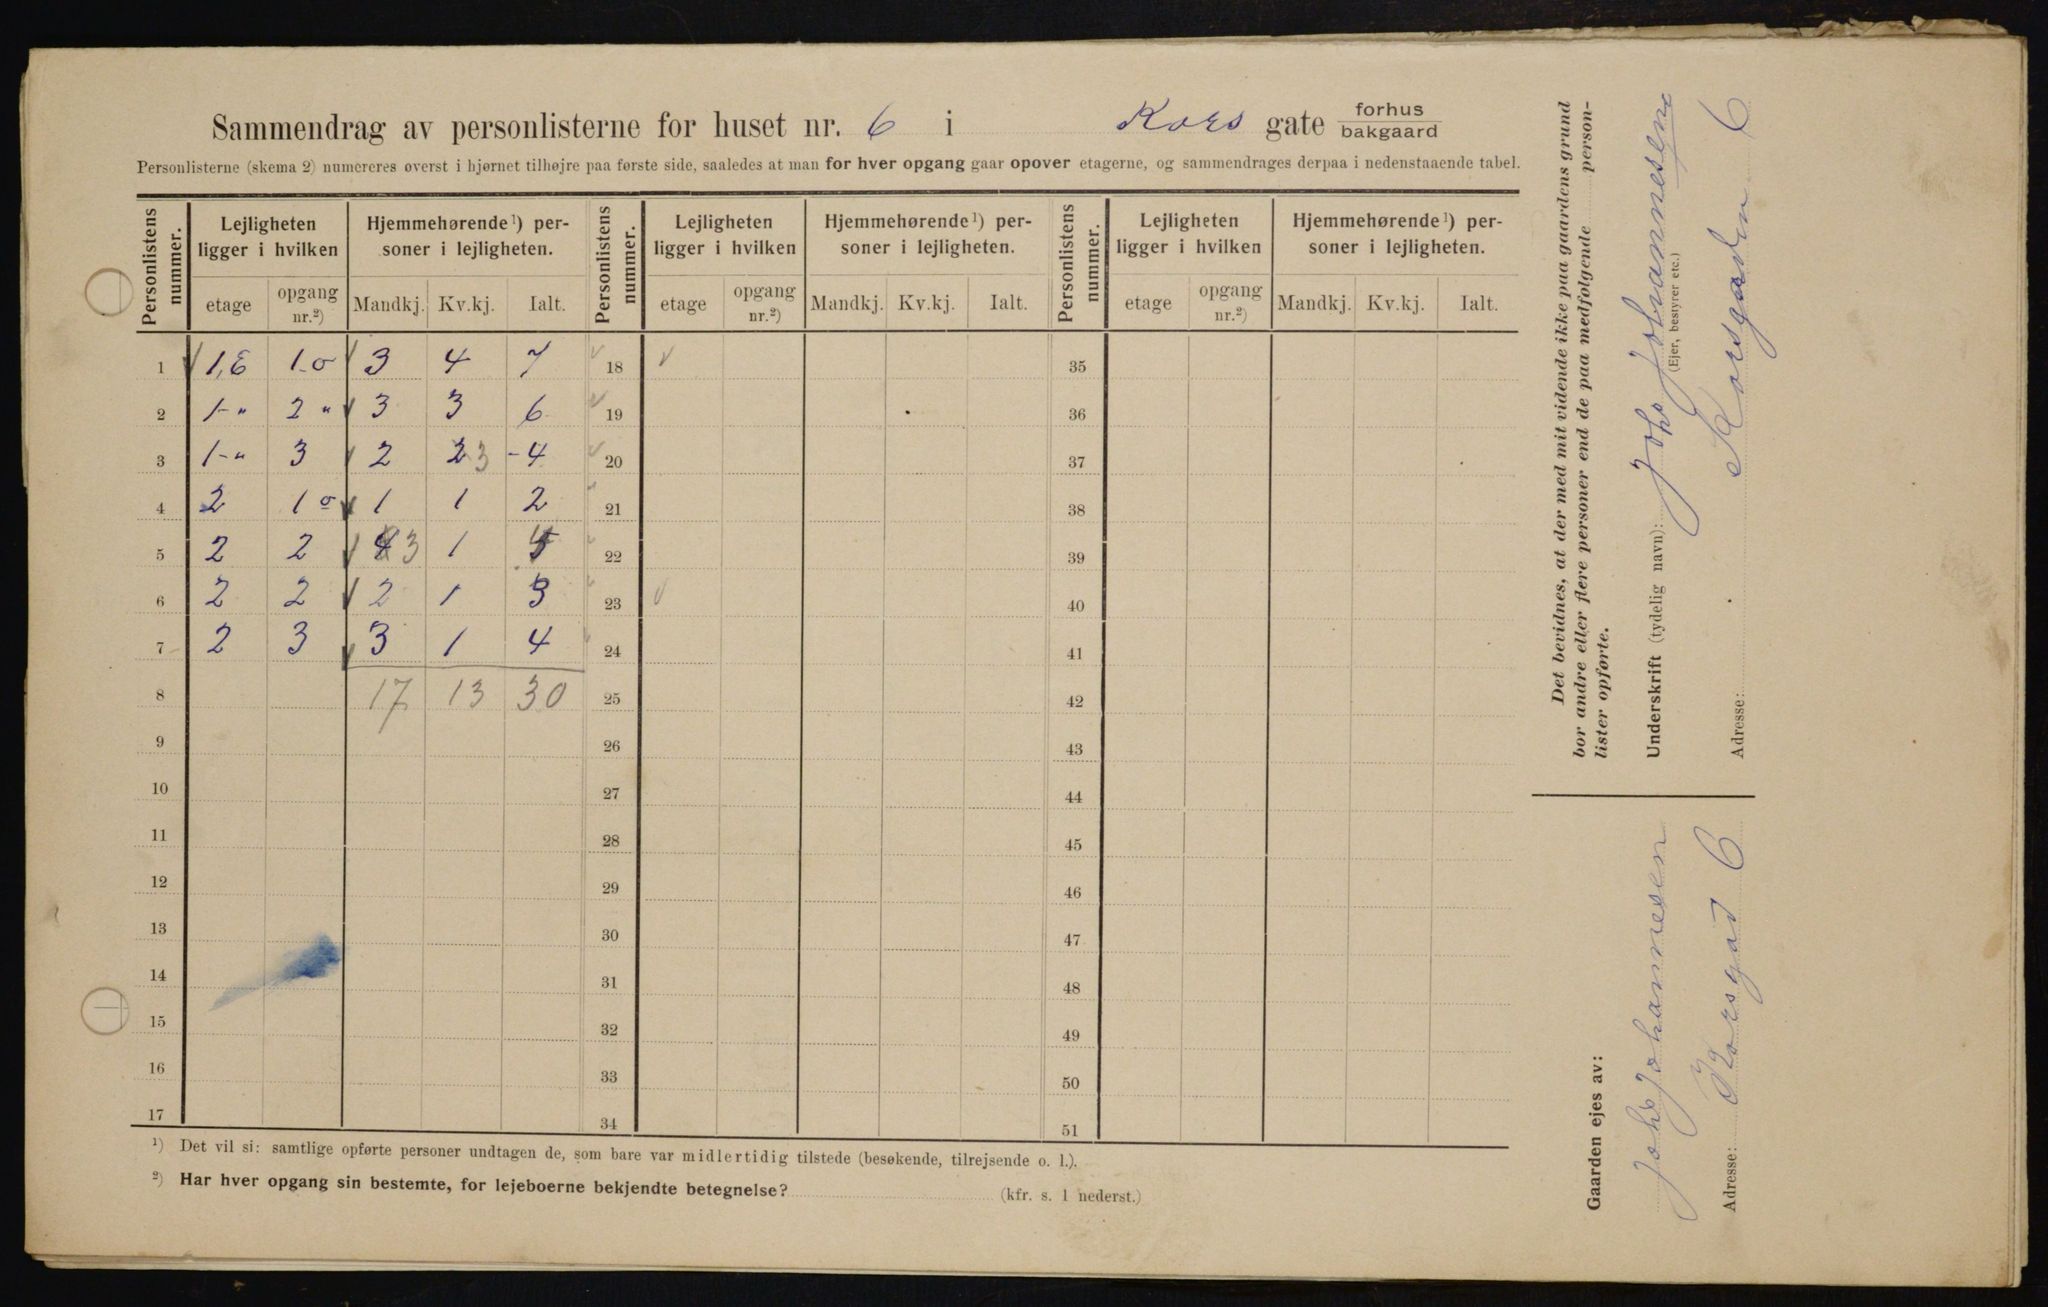 Sammendrag av personlisterne for huset nr. 6 i Kors gate forhus bakgaard
Personlisterne (skema 2) numereres øverst i hjørnet tilhøjre paa første side, saaledes at man for hver opgang gaar opover etagerne, og sammendrages derpaa i nedenstaaende tabel.
Personlistens nummer. Lejligheten ligger i hvilken Hjemmehørende¹) personer i lejligheten. Personlistens nummer. Lejligheten ligger i hvilken Hjemmehørende¹) personer i lejligheten. Personlistens nummer. Lejligheten ligger i hvilken Hjemmehørende¹) personer i lejligheten.
etage opgang nr.²) Mandkj. Kv.kj. Ialt. etage opgang nr.²) Mandkj. Kv.kj. Ialt. etage opgang nr.²) Mandkj. Kv.kj. Ialt.
1 1.E 1.o 3 4 7 18 35
2 1-" 2 " 3 3 6 19 36
3 1-" 3 2 2 3 -4 20 37
4 2 1 o 1 1 2 21 38
5 2 2 4 3 1 4 22 39
6 2 2 2 1 3 23 40
7 2 3 3 1 4 24 41
8 17 13 30 25 42
9 26 43
10 27 44
11 28 45
12 29 46
13 30 47
14 31 48
15 32 49
16 33 50
17 34 51
¹) Det vil si: samtlige opførte personer undtagen de, som bare var midlertidig tilstede (besøkende, tilrejsende o. l.).
²) Har hver opgang sin bestemte, for lejeboerne bekjendte betegnelse? (kfr. s. 1 nederst.)
Det bevidnes, at der med mit vidende ikke paa gaardens grund
bor andre eller flere personer end de paa medfølgende personlister opførte.
Underskrift (tydelig navn): Johs Johannesen
(Ejer, bestyrer etc.)
Adresse: Korsgaden 6
Gaarden ejes av:
Johs Johannesen
Adresse: Korsgad 6